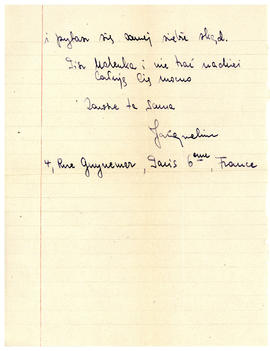 i pytasz się samej siebie skąd.
Pisz Malenka i nie trać nadziei
Całuję Cię mocno
Zawsze ta sama
Jacqueline
4, Rue Guynemer, Paris 6eme, France